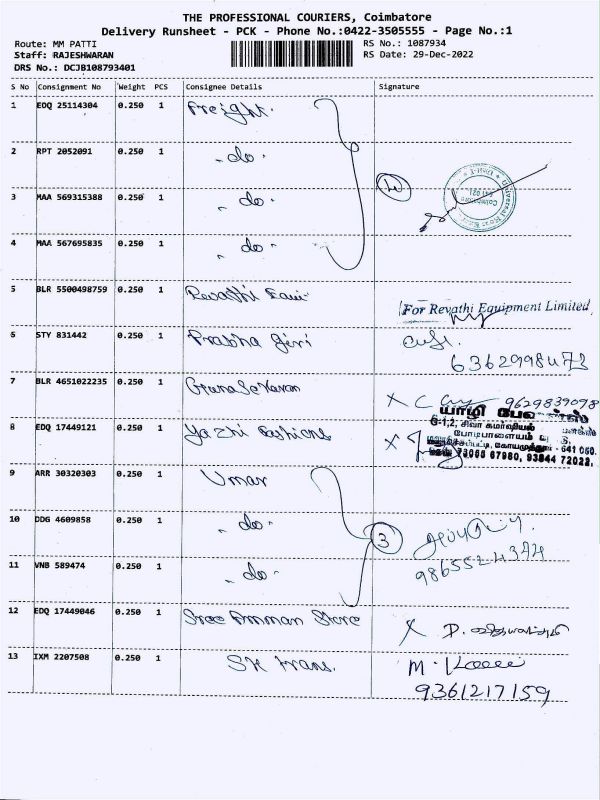 THE PROFESSIONAL COURIERS, Coimbatore
Delivery Runsheet - PCK - Phone No.:0422-3505555 - Page No.:1
Route: MM PATTI
RS No.: 1087934
Staff: RAJESHWARAN
RS Date: 29-Dec-2022
DRS No.: DCJB108793401
S No Consignment No Weight PCS Consignee Details Signature
1 EDQ 25114304 0.250 1 Freight.
2 RPT 2052091 0.250 1 - do -
3 MAA 569315388 0.250 1 - do -
4 MAA 567695835 0.250 1 - do -
5 BLR 5500498759 0.250 1 Revathi
For Revathi Equipment Limited
6 STY 831442 0.250 1 Prabha Giri
6362998473
7 BLR 4651022235 0.250 1 GunaSekaran
9629839078
8 EDQ 17449121 0.250 1 Yazhi Fashions
யாழி
G-1,2, சிவா கமர்ஷியல்
போடிபாளையம்
கோயமுத்தூர் - 641 050.
73066 67980, 93844 72022.
9 ARR 30320303 0.250 1 Umar
10 DDG 4609858 0.250 1 - do -
3
9865524344
11 VNB 589474 0.250 1 - do -
12 EDQ 17449046 0.250 1 Sree Amman Store
13 IXM 2207508 0.250 1 SK trans.
9361217159